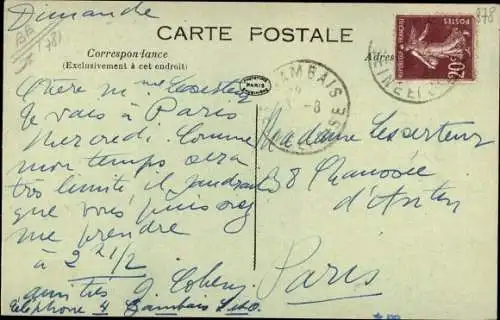 Dimanche
CARTE POSTALE
878
Correspondance
(Exclusivement à cet endroit)
POSTES
20c
PARIS
GAMBAIS
S.-&-OISE
Chère Mme Lesserteur
Je vais à Paris
Mercredi. Comme
mon temps sera
très limité il faudrait
que vous puissiez
me prendre
à 2 h 1/2
amitiés
Téléphone 4 Gambais S.&O.
Madame Lesserteur
38 Chaussée
d'Antin
Paris